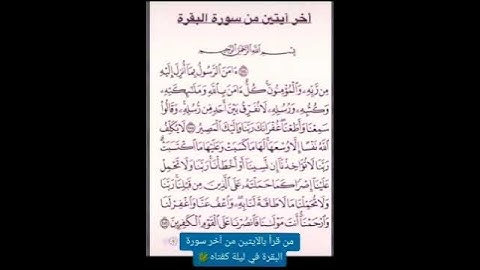 أخر آيتين من سورة البقرة
بِسْمِ اللَّهِ الرَّحْمَٰنِ الرَّحِيمِ
ءَامَنَ الرَّسُولُ بِمَا أُنزِلَ إِلَيْهِ
مِن رَّبِّهِ وَالْمُؤْمِنُونَ كُلٌّ ءَامَنَ بِاللَّهِ وَمَلَٰٓئِكَتِهِ
وَكُتُبِهِ وَرُسُلِهِ لَا نُفَرِّقُ بَيْنَ أَحَدٍ مِّن رُّسُلِهِ وَقَالُوا
سَمِعْنَا وَأَطَعْنَا غُفْرَانَكَ رَبَّنَا وَإِلَيْكَ الْمَصِيرُ لَا يُكَلِّفُ
اللَّهُ نَفْسًا إِلَّا وُسْعَهَا لَهَا مَا كَسَبَتْ وَعَلَيْهَا مَا اكْتَسَبَتْ
رَبَّنَا لَا تُؤَاخِذْنَا إِن نَّسِينَا أَوْ أَخْطَأْنَا رَبَّنَا وَلَا تَحْمِلْ
عَلَيْنَا إِصْرًا كَمَا حَمَلْتَهُ عَلَى الَّذِينَ مِن قَبْلِنَا رَبَّنَا
وَلَا تُحَمِّلْنَا مَا لَا طَاقَةَ لَنَا بِهِ وَاعْفُ عَنَّا وَاغْفِرْ لَنَا
وَارْحَمْنَا أَنتَ مَوْلَانَا فَانصُرْنَا عَلَى الْقَوْمِ الْكَٰفِرِينَ
من قرأ بالآيتين من آخر سورة
البقرة في ليلة كفتاه